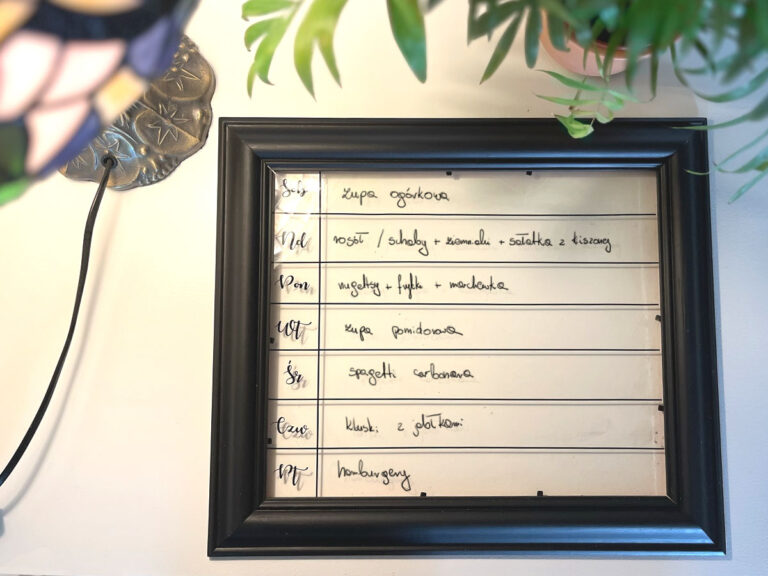 Sob zupa ogórkowa
Nd rosół / schaby + ziemniaki + sałatka z kiszonej
Pon nugetsy + frytki + marchewka
Wt zupa pomidorowa
Śr spagetti carbonara
Czw kluski z jabłkami
Pt hamburgery